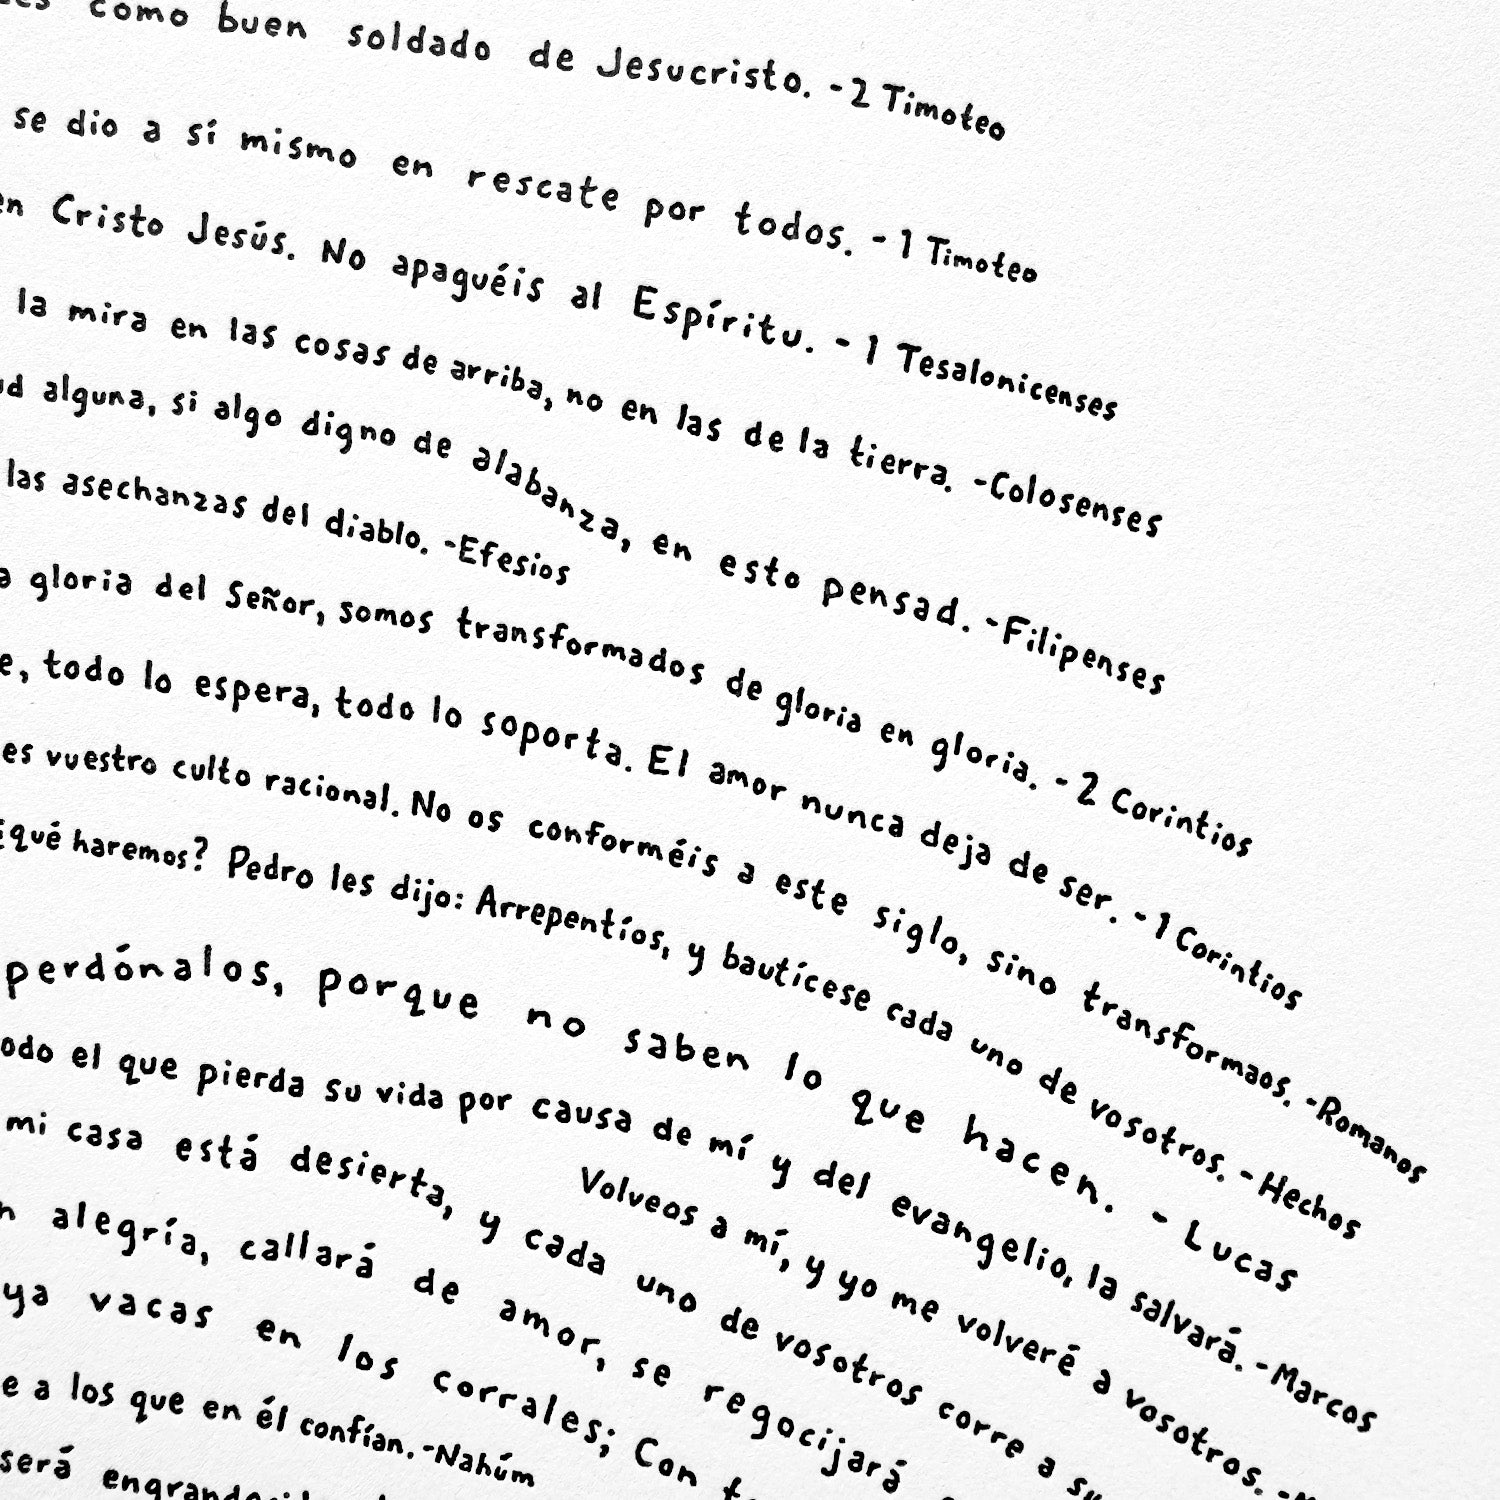 como buen soldado de Jesucristo. -2 Timoteo
se dio a sí mismo en rescate por todos. - 1 Timoteo
en Cristo Jesús. No apaguéis al Espíritu. - 1 Tesalonicenses
la mira en las cosas de arriba, no en las de la tierra. -Colosenses
alguna, si algo digno de alabanza, en esto pensad. -Filipenses
las asechanzas del diablo. -Efesios
a gloria del Señor, somos transformados de gloria en gloria. - 2 Corintios
e, todo lo espera, todo lo soporta. El amor nunca deja de ser. - 1 Corintios
es vuestro culto racional. No os conforméis a este siglo, sino transformaos. -Romanos
¿qué haremos? Pedro les dijo: Arrepentíos, y bautícese cada uno de vosotros. - Hechos
perdónalos, porque no saben lo que hacen. - Lucas
odo el que pierda su vida por causa de mí y del evangelio, la salvará. -Marcos
Volveos a mí, y yo me volveré a vosotros. -
mi casa está desierta, y cada uno de vosotros corre a su
n alegría, callará de amor, se regocijará
ya vacas en los corrales; Con
e a los que en él confían. -Nahúm
será